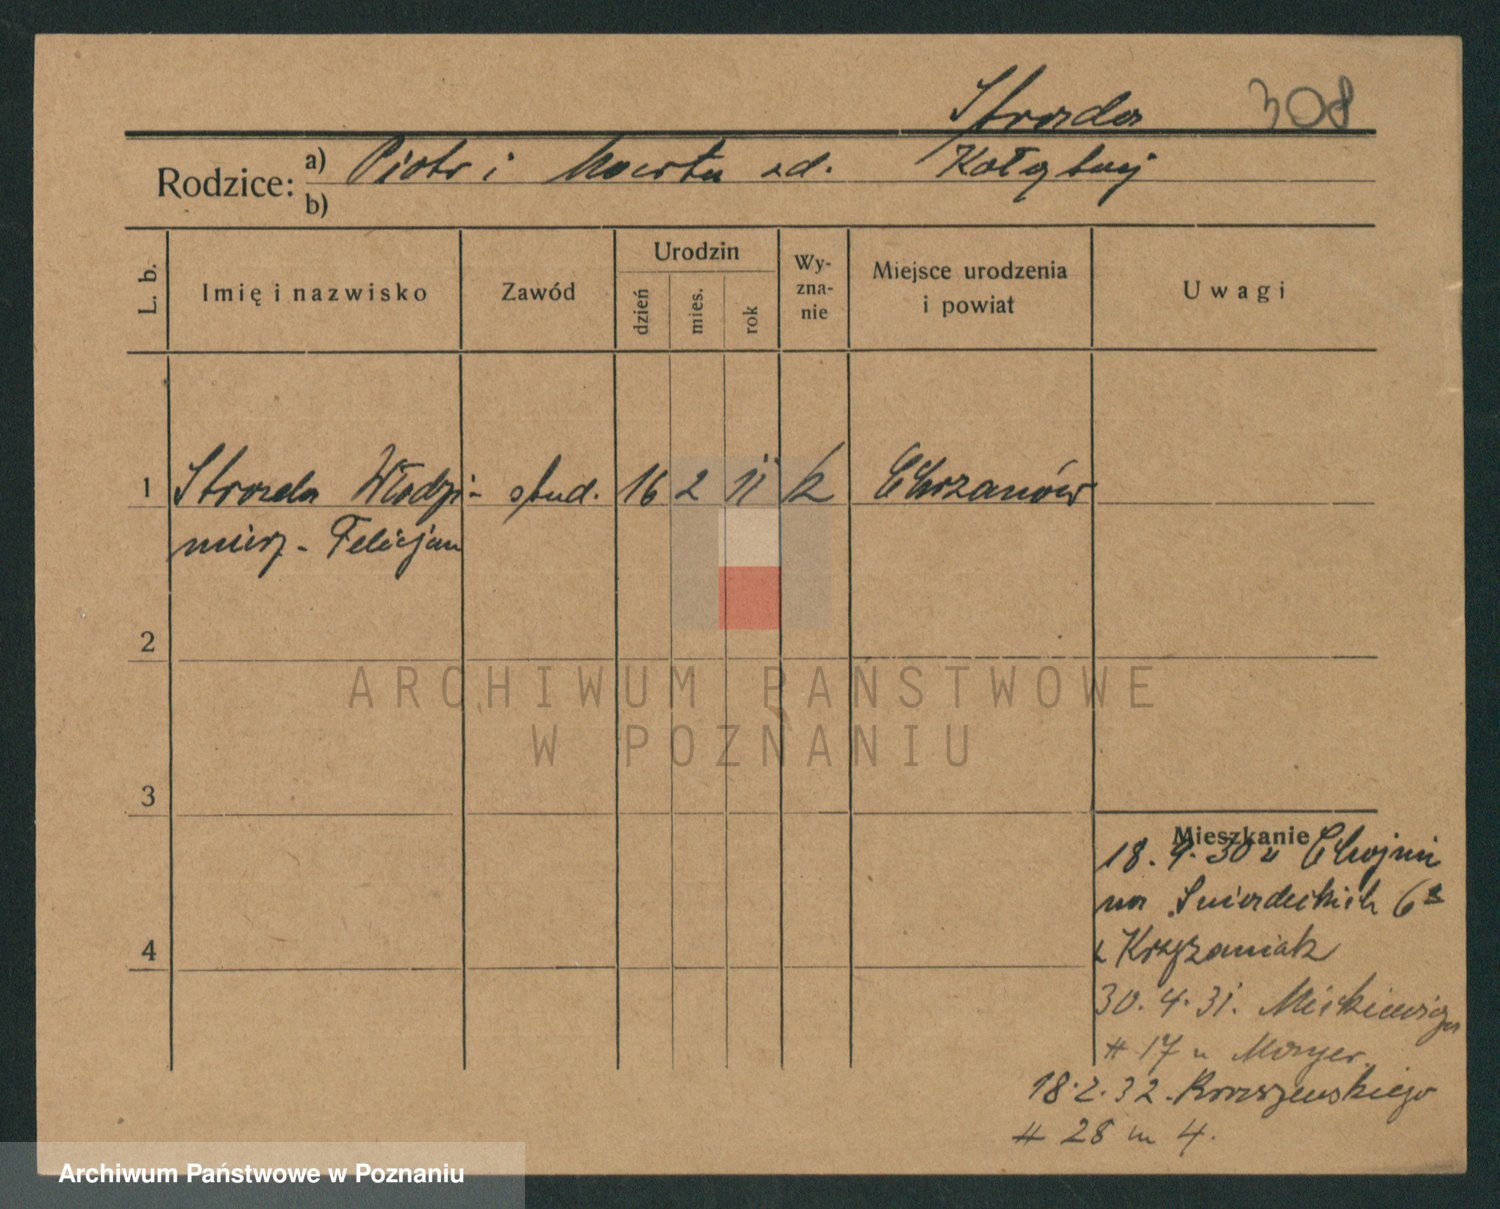 Strozda 308
Rodzice: a) Piotr i Marta zd. Kołątaj
b)
L. b. Imię i nazwisko Zawód Urodzin dzień mies. rok Wy-zna-nie Miejsce urodzenia i powiat Uwagi
1 Włodzi- stud. 16 2 11 k Chrzanów
mierz - Felicjan
2
ARCHIWUM PAŃSTWOWE
W POZNANIU
3
Mieszkanie
18. 9. 30 z
na Śniardeckich 6
z Krzyżaniak
30. 4. 31. Mickiewicza
# 17 u
18. 2. 32. Kraszewskiego
4
# 28 m 4.
Archiwum Państwowe w Poznaniu